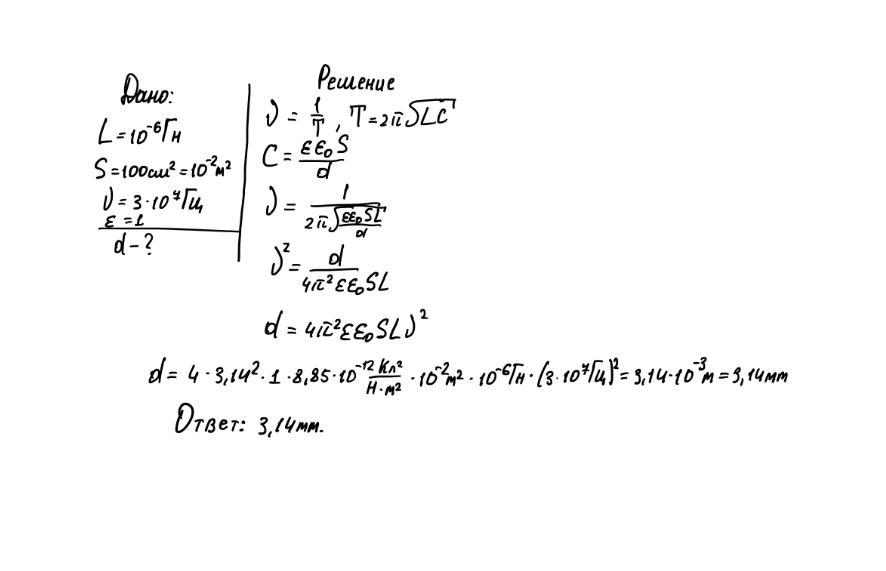 Дано:
L = 10⁻⁶ Гн
S = 100 см² = 10⁻² м²
ν = 3 · 10⁷ Гц
ε = 1
d – ?
Решение
ν = 1/T , T = 2π√LC
C = εε₀S/d
ν = 1/(2π√(εε₀SL/d))
ν² = d/(4π²εε₀SL)
d = 4π²εε₀SLν²
d = 4 · 3,14² · 1 · 8,85 · 10⁻¹² Кл²/(Н · м²) · 10⁻² м² · 10⁻⁶ Гн · (3 · 10⁷ Гц)² = 3,14 · 10⁻³ м = 3,14 мм
Ответ: 3,14 мм.